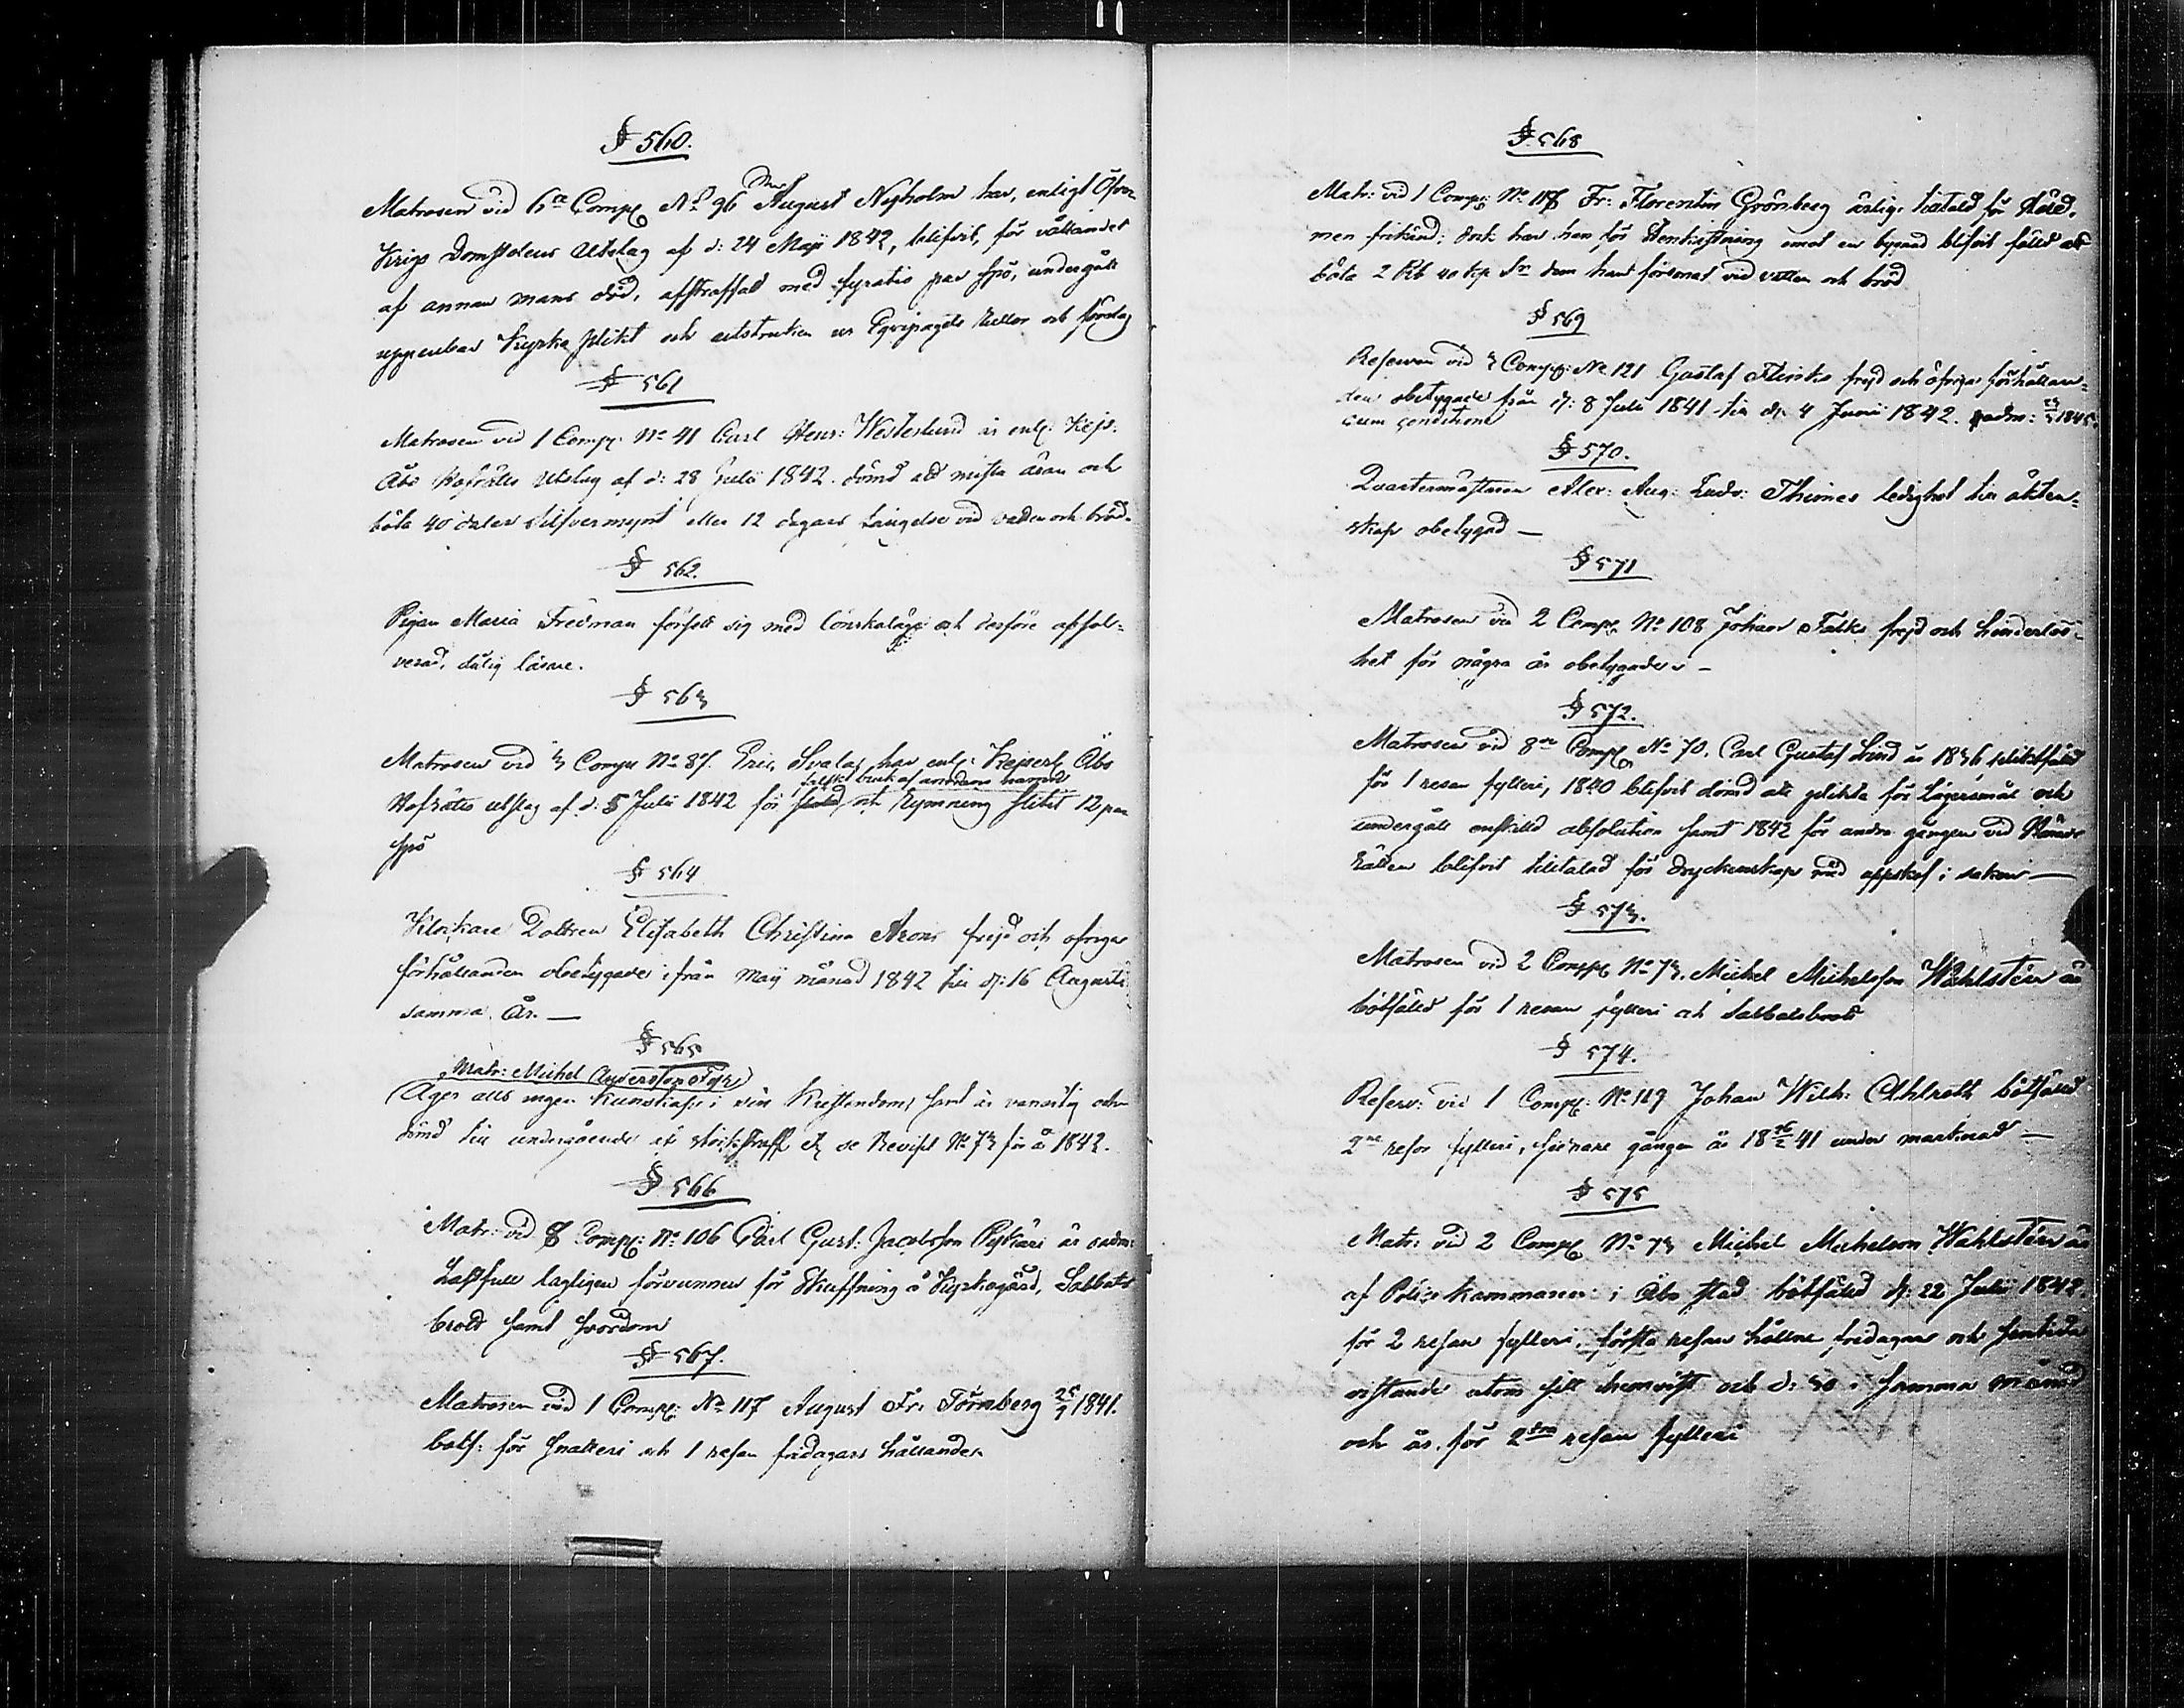 § 560.
Matrosen vid 6te Comp: No 96 August Nyholm har, enligt Öfver
Krigs Domstolens Utslag af d: 24 Maji 1842, blifvit, för vållandet
af annan mans död, afstraffad med fyratio par spö, undergått
uppenbar Kyrkoplikt och utstruken ur Equipagets Rullor och förslag
§ 561
Matrosen vid 1 Comp: No 41 Carl Henr: Westerlund är enl: Kejs:
Åbo Hofrätts Utslag af d: 28 Julii 1842 dömd att mista äran och
böta 40 daler Silfvermynt eller 12 dagars fängelse vid vatten och bröd.
§ 562.
Pigan Maria Fredman försett sig med Lönskaläge och derföre absol-
verad, dålig läsare.
§ 563
Matrosen vid 3 Comp: No 87. Eric Svalas har enl: Kejserl: Åbo
falskt bruk af annans namn
Hofrätts utslag af d: 5 Julii 1842 för stöld, och Rymning slitit 12 par
spö
§ 564
Klockare Dottren Elisabeth Christina Arons frejd och öfriga
förhållanden obetygade ifrån Maij månad 1842 till d: 16 Augusti
samma År. —
§ 565
Matr: Michel Andersson
Äger alls ingen Kunskap i sin Kristendom, samt är vanvetig och
dömd till undergående af straff se Bevist No 73 för år 1842.
§ 566
Matr: vid 8 Comp: No 106 Carl Gust: Jacobsson är
Lastfull lagligen förvunnen för Skuffning å Kyrkogård, Sabbats
brott samt svordom
§ 567.
Matrosen vid 1 Comp: No 117 August Fr: Törnberg 25/9 1841.
botf: för snatteri och 1 resan fridagars hållande.
§ 568
Matr: vid 1 Comp: No 118 Fr: Florentin Grönberg tilltald för stöld,
men frikänd; dock har han för Stenkastning emot en byggnad blifvit fälld att
böta 2 Rb 40 kop Sr dem han försonat vid vatten och bröd
§ 569
Reserven vid 3 Comp: No 121 Gustaf Flinks frejd och öfriga förhållan-
den obetygade från d: 8 Julii 1841 till d: 4 Junii 1842.
cum conditione
§ 570.
Quartermästaren Alex: Aug: Ludv: Thimes ledighet till äkten-
skap obetygad —
§ 571
Matrosen vid 2 Comp: No 108 Johan Falks frejd och hinderlös-
het för några år obetygade —
§ 572.
Matrosen vid 8de Comp: No 70. Carl Gustaf Lind är 1836 pliktfälld
för 1 resan fylleri, 1840 blifvit dömd att plikta för Lägersmål och
undergått enskild absolution samt 1842 för andra gången vid Kämnärs
Rätten blifvit tilltalad för dryckenskap med uppskof i saken —
§ 573.
Matrosen vid 2 Comp: No 73. Michel Michelsson Wahlstén är
bötfälld för 1 resan fylleri och Sabbatsbrott
§ 574.
Reserv: vid 1 Comp: No 119 Johan Wilh: Ahlroth bötfälld
2ne resor fylleri, sednare gången år 18 16/2 41 under marknad —
§ 575
Matr: vid 2 Comp: No 73 Michel Michelsson Wahlstén är
af Polis kammaren i Åbo stad bötfälld d: 22 Julii 1842.
för 2 resan fylleri, första resan hållne fridagar och
vistande utom sitt hemvist och d: 30 i samma månad
och år för 2dra resan fylleri